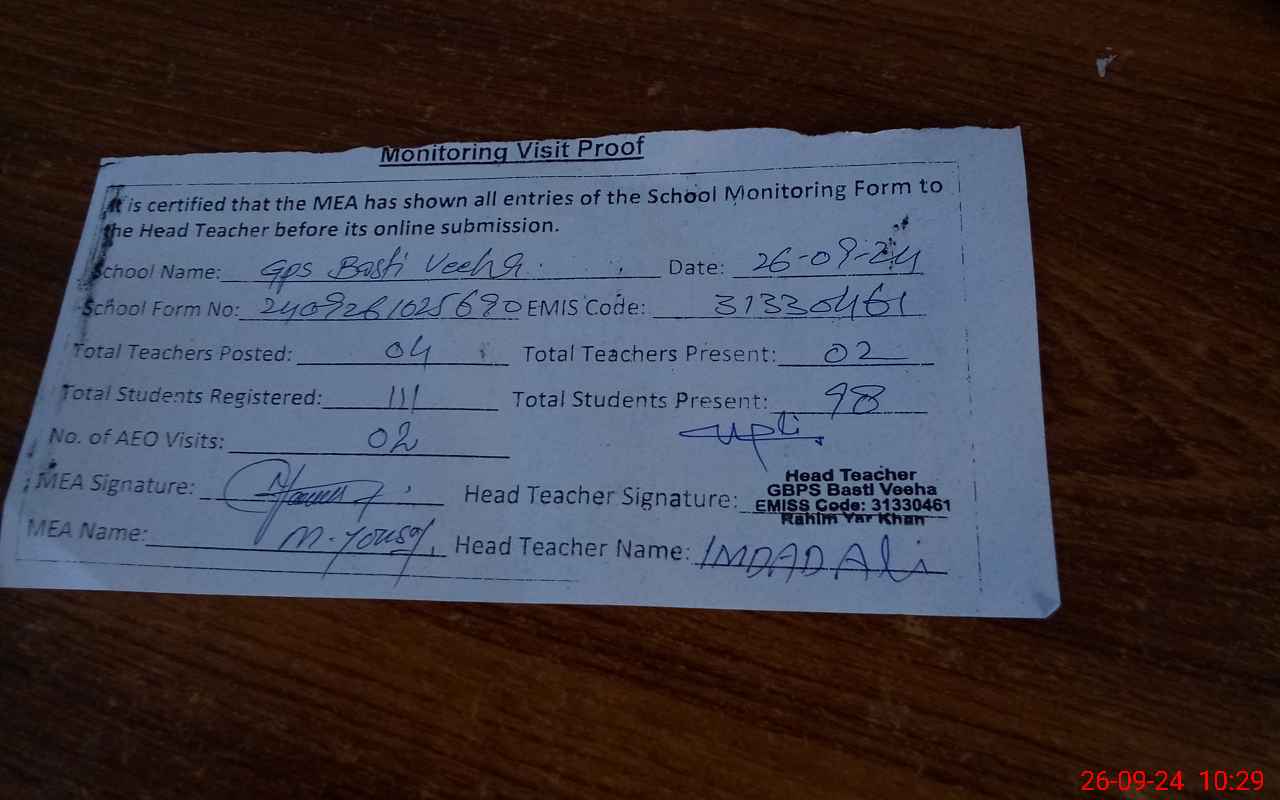 Monitoring Visit Proof
It is certified that the MEA has shown all entries of the School Monitoring Form to
the Head Teacher before its online submission.
School Name: GPS Basti Veeha Date: 26-09-24
School Form No: 2409261025690 EMIS Code: 31330461
Total Teachers Posted: 04 Total Teachers Present: 02
Total Students Registered: 111 Total Students Present: 98
No. of AEO Visits: 02
MEA Signature: Head Teacher Signature:
Head Teacher
GBPS Basti Veeha
EMISS Code: 31330461
Rahim Yar Khan
MEA Name: M. Yousaf Head Teacher Name: IMDAD Ali
26-09-24 10:29